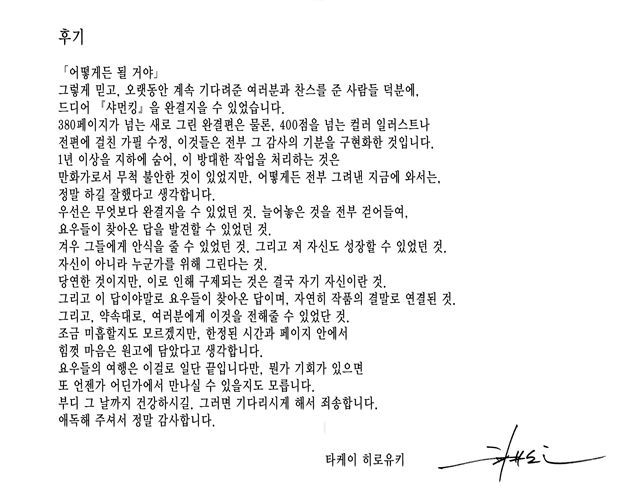 후기
「어떻게든 될 거야」
그렇게 믿고, 오랫동안 계속 기다려준 여러분과 찬스를 준 사람들 덕분에,
드디어 『샤먼킹』을 완결지을 수 있었습니다.
380페이지가 넘는 새로 그린 완결편은 물론, 400점을 넘는 컬러 일러스트나
전편에 걸친 가필 수정, 이것들은 전부 그 감사의 기분을 구현화한 것입니다.
1년 이상을 지하에 숨어, 이 방대한 작업을 처리하는 것은
만화가로서 무척 불안한 것이 있었지만, 어떻게든 전부 그려낸 지금에 와서는,
정말 하길 잘했다고 생각합니다.
우선은 무엇보다 완결지을 수 있었던 것. 늘어놓은 것을 전부 걷어들여,
요우들이 찾아온 답을 발견할 수 있었던 것.
겨우 그들에게 안식을 줄 수 있었던 것. 그리고 저 자신도 성장할 수 있었던 것.
자신이 아니라 누군가를 위해 그린다는 것.
당연한 것이지만, 이로 인해 구제되는 것은 결국 자기 자신이란 것.
그리고 이 답이야말로 요우들이 찾아온 답이며, 자연히 작품의 결말로 연결된 것.
그리고, 약속대로, 여러분에게 이것을 전해줄 수 있었단 것.
조금 미흡할지도 모르겠지만, 한정된 시간과 페이지 안에서
힘껏 마음은 원고에 담았다고 생각합니다.
요우들의 여행은 이걸로 일단 끝입니다만, 뭔가 기회가 있으면
또 언젠가 어딘가에서 만나실 수 있을지도 모릅니다.
부디 그 날까지 건강하시길. 그러면 기다리시게 해서 죄송합니다.
애독해 주셔서 정말 감사합니다.
타케이 히로유키